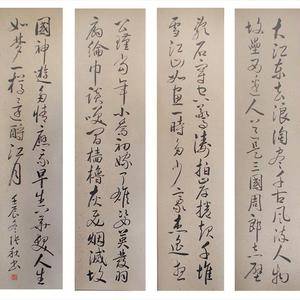 大江东去浪淘尽千古风流人物
故壘西边人道是三國周郎赤壁
乱石穿空惊涛拍岸捲起千堆
雪江山如画一時多少豪杰遥想
公瑾當年小喬初嫁了雄姿英發羽
扇綸巾談笑間檣櫓灰飞烟滅故
國神遊多情應笑我早生华髮人生
如梦一樽還酹江月 壬辰冬